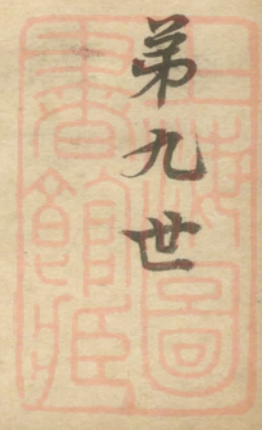 弟九世
上海圖
書館藏